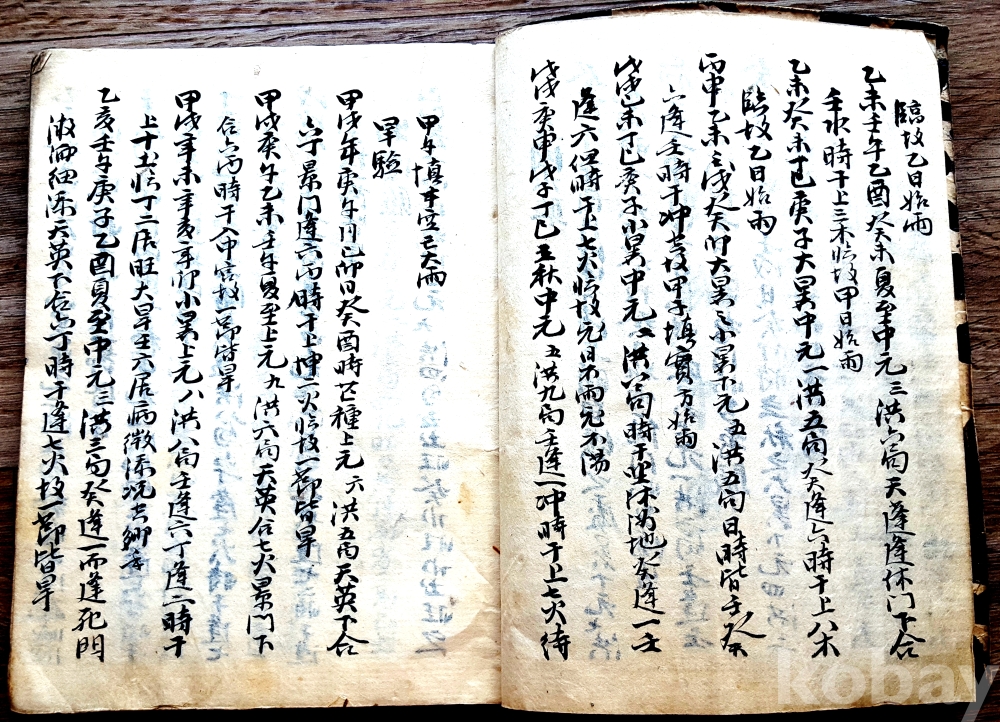 臨坟乙日始雨
乙未壬午乙酉癸未夏至中元三洪六局天逢逢休门下合
壬水時干上三木临坟甲日始雨
乙未癸未丁巳庚子大暑中元一洪五局癸逢六時干上八木
臨坟乙日始雨
丙申乙未 戊癸 大暑 小暑下元五洪五局日時皆壬癸
六逢壬時干冲 坟甲子填實方始雨
戊戌己未丁巳庚子小暑中元八洪八局時干 休 地癸逢一壬
逢六但時干上七火临坟元日不雨元不湯
戊戌庚申戊子丁巳立秋中元五洪九局壬逢一冲時干上七火待
甲午填 宮己大雨
旱驗
甲戌年庚午月己卯日癸酉時芒種上元六洪五局天英下合
六丁景门逢六丙時干上坤二火临坟一節皆旱
甲戌庚午乙未壬午夏至上元九洪六局天英合七火景门下
合六丙時干入中宮坟一節皆旱
甲戌辛未辛亥辛卯小暑上元八洪八局壬逢六丁逢二時干
上十土临丁二居旺大旱壬六居病微 况 鄉
乙亥壬午庚子乙酉夏至中元三洪三局癸逢一而逢死門
细 天英下合六丁時干逢七火坟一節皆旱
kobay